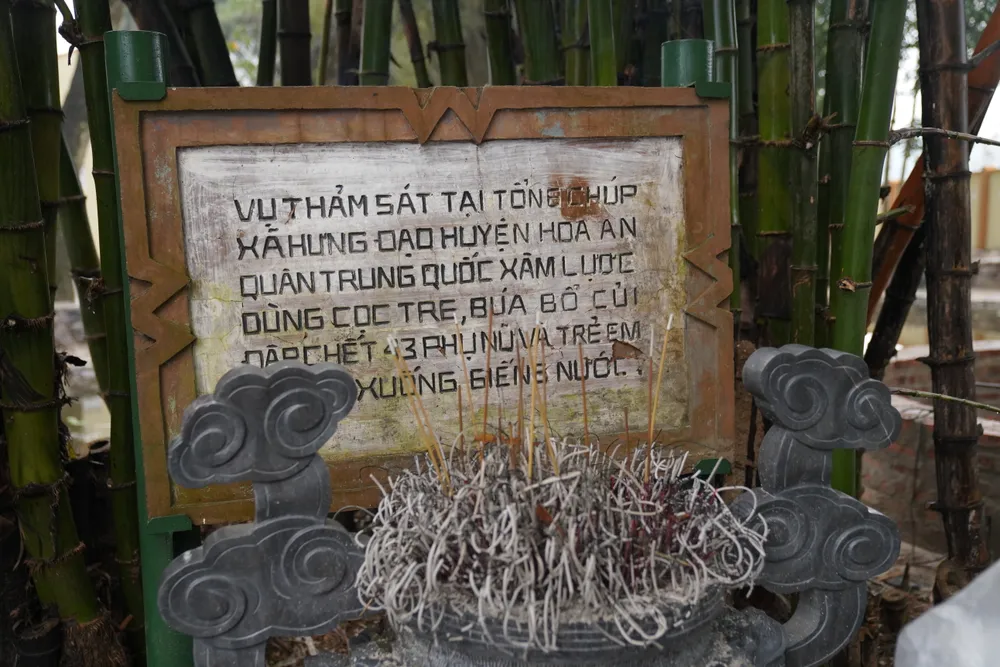 VỤ THẢM SÁT TẠI TỔNG CHÚP
XÃ HƯNG ĐẠO HUYỆN HOÀ AN
QUÂN TRUNG QUỐC XÂM LƯỢC
DÙNG CỌC TRE, BÚA BỔ CỦI
ĐẬP CHẾT 43 PHỤ NỮ VÀ TRẺ EM
XUỐNG GIẾNG NƯỚC.